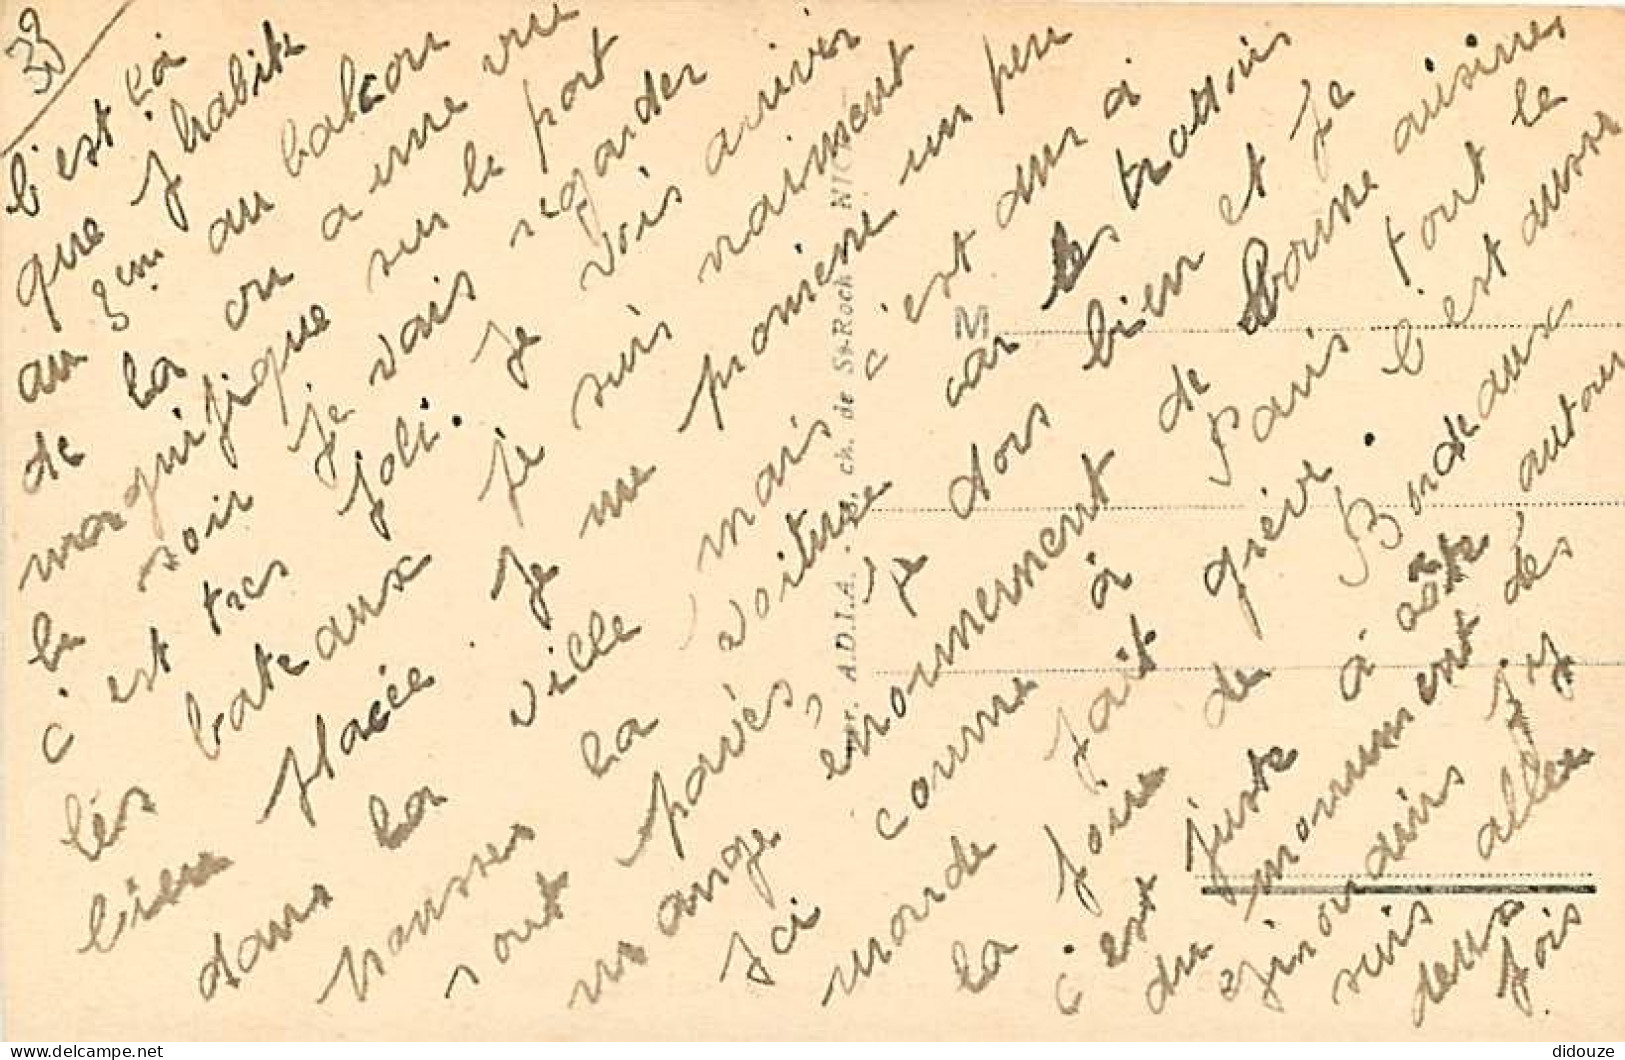 33
c'est là
que j'habite
au 3em au balcon
de la on a une vue
magnifique sur le port
le soir je vais regarder
c'est tres joli. Je vois arriver
les bateaux je suis vraiment
bien placée. Je me promene un peu
dans la ville mais c'est dur à
pousser la voiture car les trottoirs
sont pavés, je dors bien et Je
mange enormement de bonne cuisine
Ici comme à Paris tout le
monde fait grève. C'est aussi
la foire de Bordeaux
c'est juste à côté autour
du monument des
girondins j'y
suis allée
deux fois
M
Imp. A.D.I.A. ch. de St-Roch NICE
didouze
delcampe.net